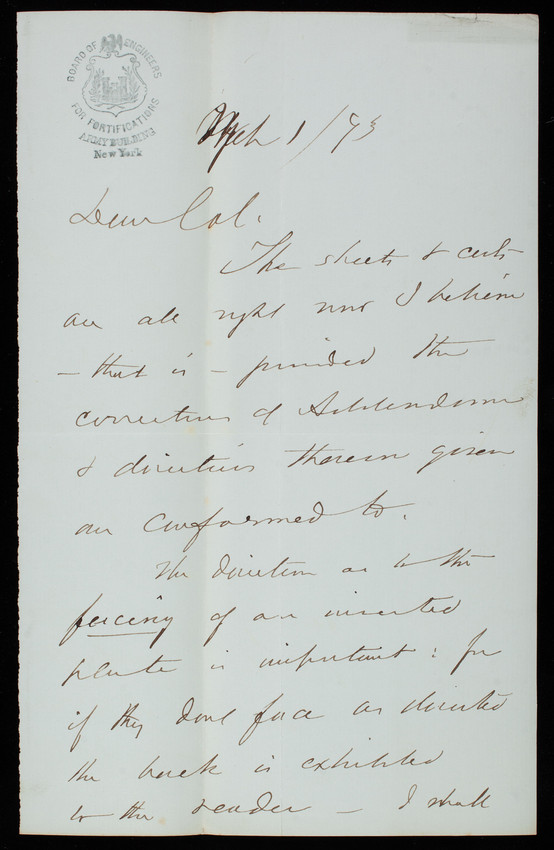 BOARD OF ENGINEERS
FOR FORTIFICATIONS
ARMY BUILDING
New York
Mch 1/73
Dear Col.
The sheets & cuts
are all right now I believe
- that is - provided the
corrections of Addendum
& directions therein given
are conformed to.
The direction as to the
facing of an inserted
plate is important: for
if they dont face as directed
the back is exhibited
to the reader - I shall